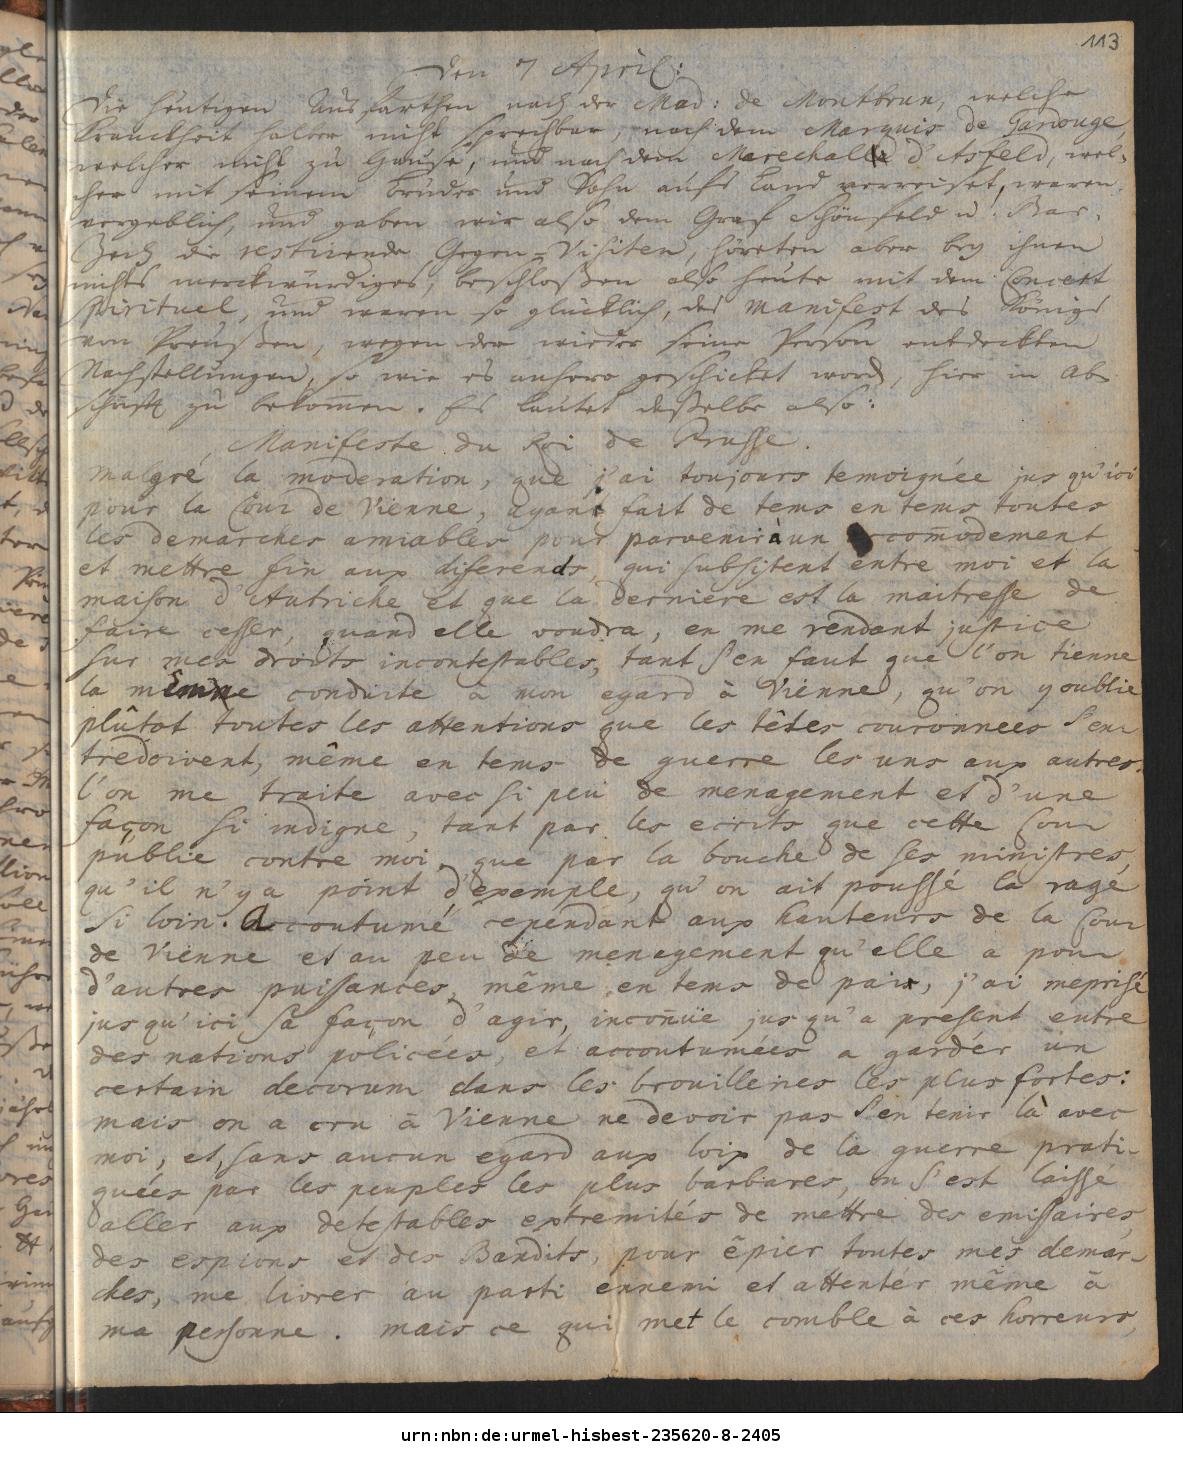 113
den 7 April:
Die heutigen Ausfarthen nach der Mad: de Montbrun, welche
Kranckheit halber nicht sprechbar, nach dem Marquis de Gandouge,
welcher nicht zu Hause, und nach dem Marechall d'Asfeld, wel-
cher mit seinem Bruder und Sohn aufs Land verreiset, waren
vergeblich, und gaben wir also dem Graf Schönfeld u. Bar.
Zech die restirende Gegen-Visiten, höreten aber bey ihnen
nichts merckwürdiges, beschloßen also heute mit dem Concert
spirituel, und waren so glücklich, das Manifest des Königs
von Preußen, wegen der wieder seine Person entdeckten
Nachstellungen, so wie es anhero geschicket word, hier in Ab-
schrifft zu bekom̄en. Es lautet daßelbe also:
Manifeste du Roi de Prusse.
Malgré la moderation, que j'ai toujours temoignée jusqu'ici
pour la Cour de Vienne, ayant fait de tems en tems toutes
les demarches amiables pour parvenir à un accom̄odement
et mettre fin aux diferends, qui subsistent entre moi et la
maison d'Autriche et que la derniere est la maitresse de
faire cesser, quand elle voudra, en me rendant justice
sur mes droits incontestables, tant s'en faut que l'on tienne
la même conduite à mon egard à Vienne, qu'on y oublie
plûtot toutes les attentions que les têtes couronnees s'en-
tredoivent, même en tems de guerre les uns aux autres.
l'on me traite avec si peu de menagement et d'une
façon si indigne, tant par les ecrits que cette Cour
publie contre moi, que par la bouche de ses ministres,
qu'il n'y a point d'exemple, qu'on ait poussé la rage
si loin. Accoutumé cependant aux hauteurs de la Cour
de Vienne et au peu de menegement qu'elle a pour
d'autres puissances, même en tems de paix, j'ai meprisé
jusqu'ici sa façon d'agir, incon̄üe jusqu'a present entre
des nations policées, et accoutumées a garder un
certain decorum dans les brouilleries les plus fortes:
mais on a cru à Vienne ne devoir pas s'en tenir là avec
moi, et, sans aucun egard aux loix de la guerre prati-
quées par les peuples les plus barbares, on s'est laissé
aller aux detestables extremités de mettre des emissaires,
des espions et des Bandits, pour épier toutes mes demar-
ches, me livrer au parti ennemi et attenter même à
ma personne. mais ce qui met le comble à ces horreurs,
urn:nbn:de:urmel-hisbest-235620-8-2405